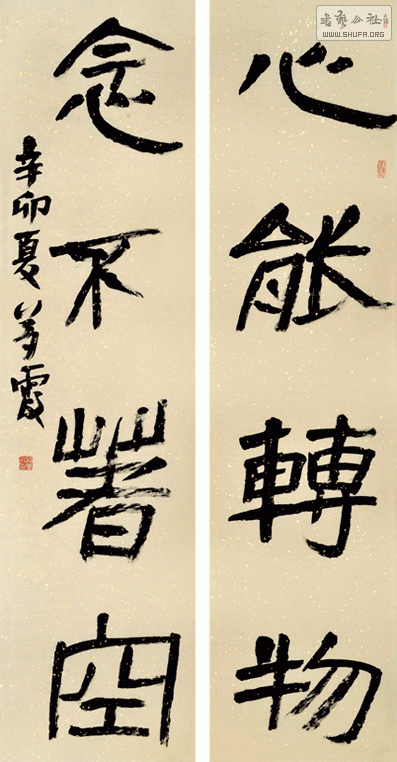 心能轉物
念不著空
辛卯夏
書藝公社
WWW.SHUFA.ORG